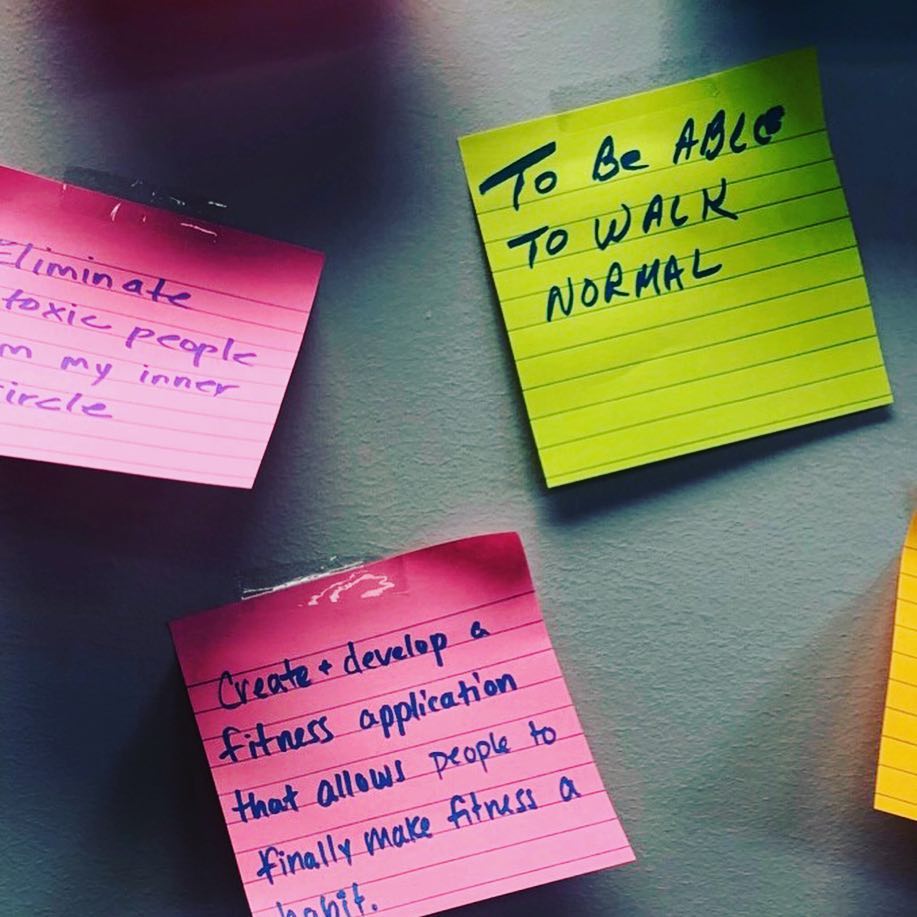 Eliminate
toxic people
m my inner
circle
To Be ABLe
TO WALK
NORMAL
Create + develop a
fitness application
that allows people to
finally make fitness a
habit.